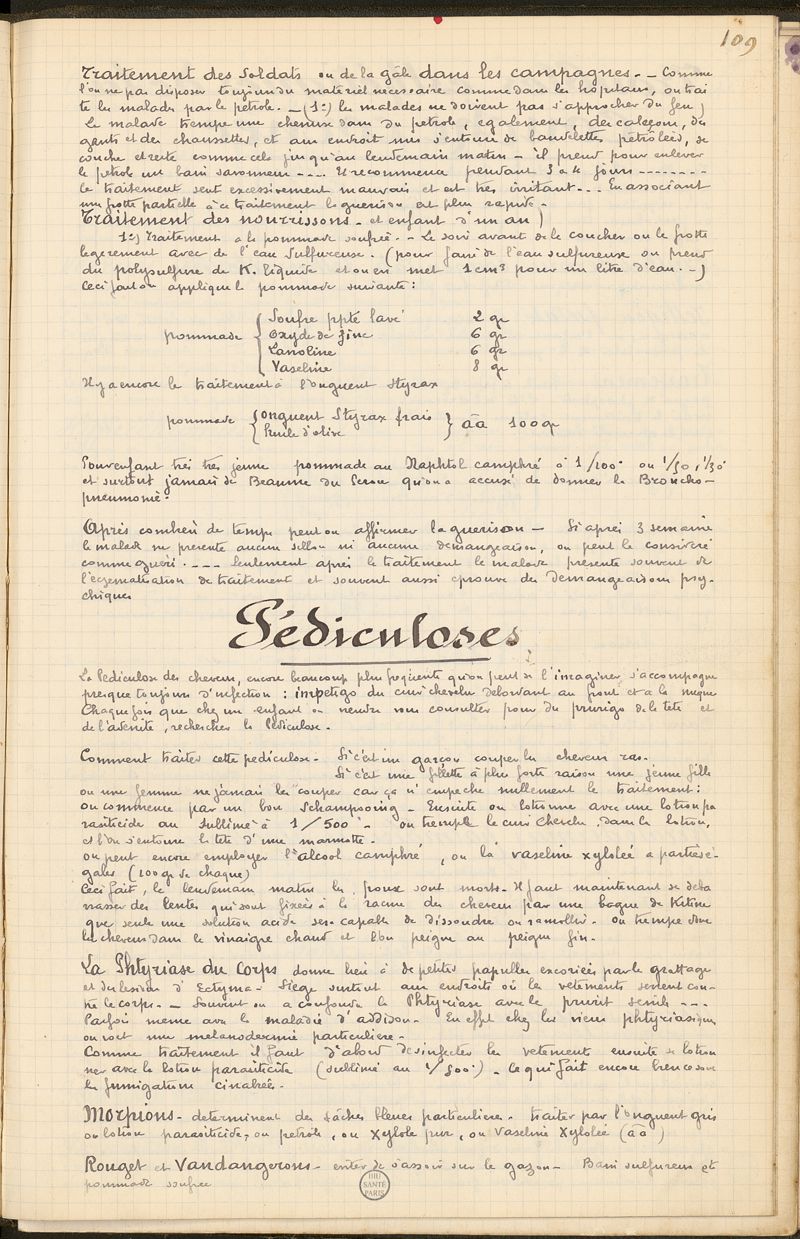 109
Traitement des Soldats ou de la gâle dans les campagnes. - Comme
l'on ne pas disposer toujours du materiel necessaire comme dans les hôpitaux, on trai
te les malades par le petrole. - (1º) les malades ne doivent pas s'approcher du feu)
Le malade trempe une chemise dans du petrole, egalement, des caleçons, des
gants et des chaussettes, et aux endroit nus s'entoure de bandelettes petrôlées, se
couche et reste comme cela jusqu'au lendemain matin - il prend pour enlever
le petrole un bain savonneux - ... Et recommence pendant 3 a 4 jours --------
le traitement sent excessivement mauvais et est très irritant... En associant
une frotte partielle à ce traitement la guerison est plus rapide -
Traitement des nourrissons - et enfant d'un an)
1º) Traitement a la pommade soufrée. - Le soir avant de le coucher on le frotte
legerement avec de l'eau Sulfureuse. (pour faire de l'eau sulfureuse on prend
du polysulfure de K. liquide et on en met 1 cm³ pour un litre d'eau. -)
Ceci fait on applique la pommade suivante :
pommade { Soufre ppté lavé 2 gr
Oxyde de Zinc 6 gr
Lanoline 6 gr
Vaseline 8 gr
Il y a encore le traitement à l'onguent Styrax
pommade { Onguent Styrax frais
Huile d'olive } ãa 100 gr
Pour enfant très très jeune pommade au Naphtol camphré à 1/100º ou 1/50, 1/30
et surtout jamais de Beaume du Perou qu'on a accusé de donner la Broncho-
pneumonie.
Après combien de temps peut on affirmer la guerison - Si aprés 3 semaine
le malade ne presente aucun sillon ni aucune demangeaison, on peut le considéré
comme guéri. - - - Seulement après le traitement le malade presente souvent de
l'eczematisation de traitement et souvent aussi eprouve des demangeaisons psy-
chiques
Pédiculoses
La Pediculose des cheveux, encore beaucoup plus frequente qu'on peut se l'imaginer s'accompagne
presque toujours d'infection : impetigo du cuir chevelu debordant au front et a la nuque
Chaque fois que chez un enfant on viendra vous consulter pour du prurigo de la tete et
de l'adenite, rechercher la Pédiculose.
Comment traiter cette pediculose. Si c'est un garçon couper les cheveux ras.
Si c'est une fillette à plus forte raison une jeune fille
ou une femme ne jamais les couper car ça n'empeche nullement le traitement :
on commence par un bon Schampooing - Ensuite on lotionne avec une lotion pa
rasiticide au Sublimé à 1/500º - on trempe le cuir chevelu dans la lotion,
et l'on s'entoure la tete d'une marmotte.
On peut encore employer l'alcool camphré, ou la vaseline xylolée a parties é-
gales (100 gr de chaque)
Ceci fait, le lendemain matin les poux sont morts. Il faut maintenant se deba
rasser des lentes qui sont fixées à la racine des cheveux par une bague de Kitine
que seule une solution acide est capable de dissoudre ou ramollir. On trempe donc
les cheveux dans le vinaigre chaud et l'on peigne au peigne fin.
La Phtyriase du corps donne lieu à de petites papulles excoriées par le grattage
et des lesions d'Ectyma - Siege surtout aux endroits où les vetements serrent con-
tre le corps. - Souvent on a confondu la Phtyriase avec le prurit senile - - -
Parfois meme avec la maladie d'addison. En effet chez les vieux phtyriasiques
on voit une melanodermie particuliere.
Comme traitement il faut d'abord desinfecter les vetements ensuite se lotion
ner avec la lotion parasiticide (Sublimé au 1/500º) - Ce qui fait encore bien ce sont
les fumigations cinabrées.
Morpions - determinent des tâches bleues particuliere. traiter par l'onguent gris
ou lotion parasiticide, ou petrole, ou Xylole pur, ou Vaseline Xylolée (ãa)
Rouget et Vandangerons - eviter de s'assoir sur le gazon - Bain sulfureux et
pommade soufree
BIU
SANTÉ
PARIS